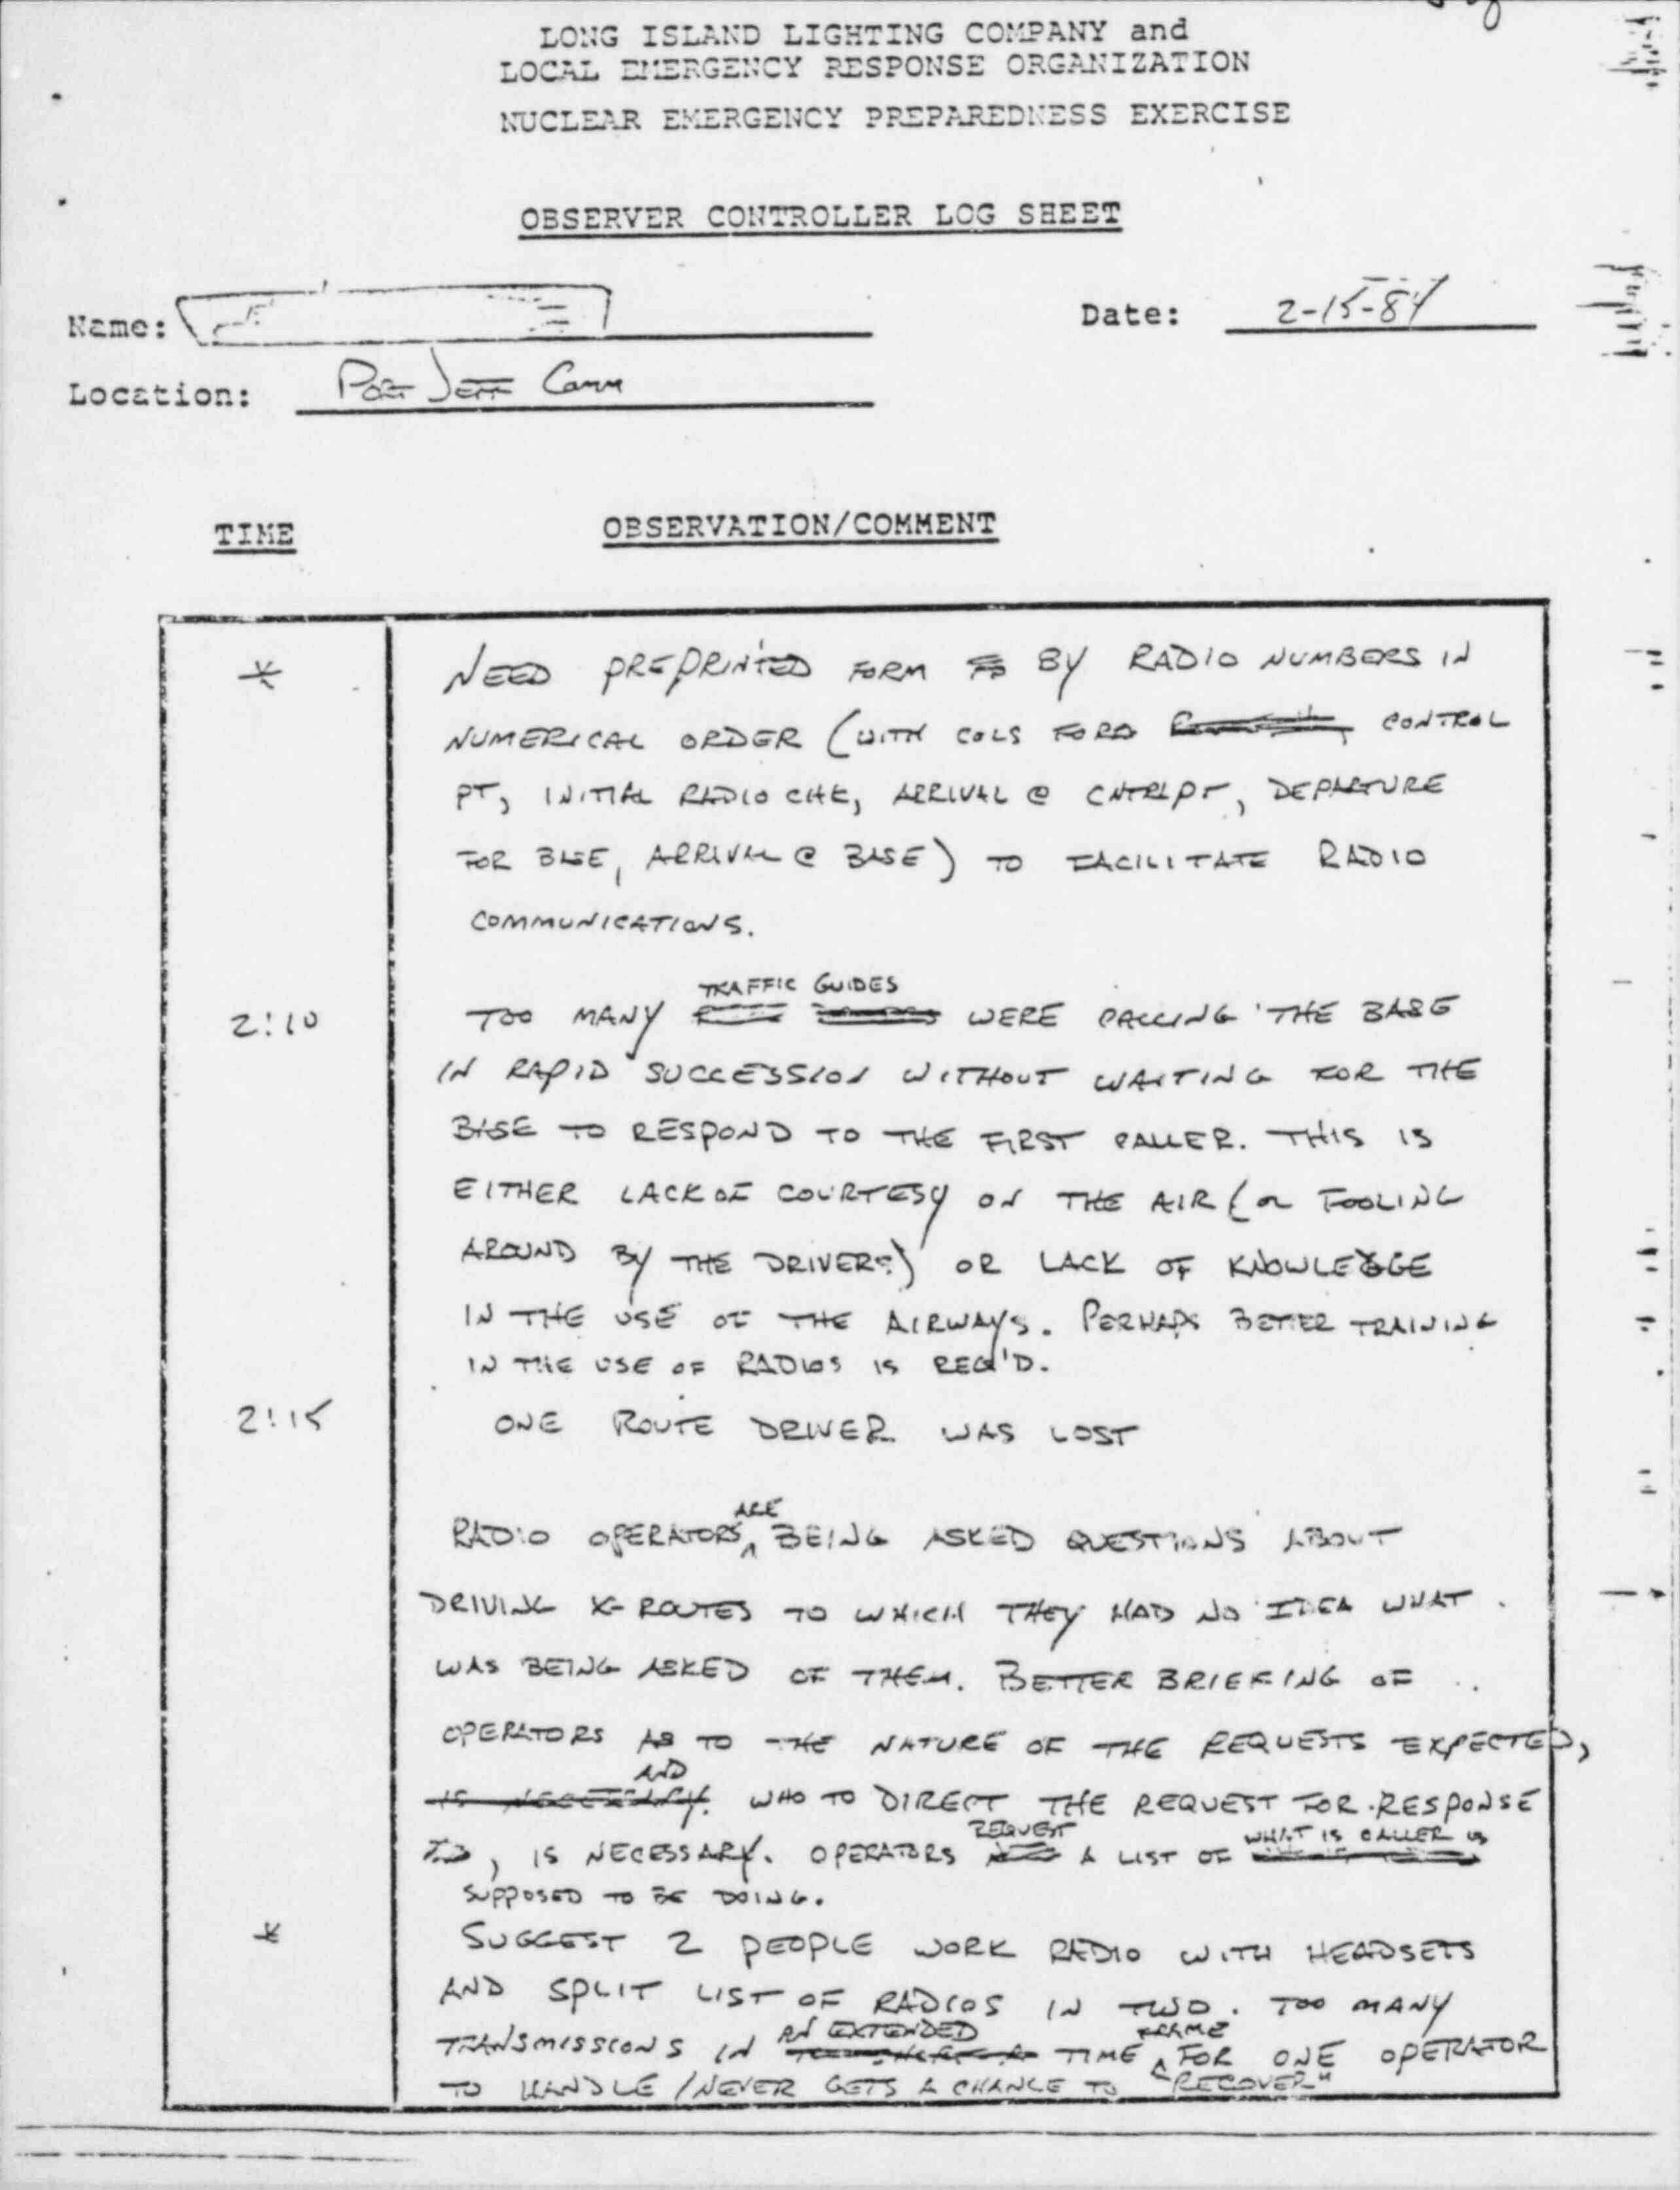 LONG ISLAND LIGHTING COMPANY and
LOCAL EMERGENCY RESPONSE ORGANIZATION
NUCLEAR EMERGENCY PREPAREDNESS EXERCISE
OBSERVER CONTROLLER LOG SHEET
Name:
Date: 2-15-84
Location: PORT JEFF COMM
TIME OBSERVATION/COMMENT
* NEED PREPRINTED FORM BY RADIO NUMBERS IN
NUMERICAL ORDER (WITH COLS FOR CONTROL
PT, INITIAL RADIO CHK, ARRIVAL @ CNTRLPT, DEPARTURE
FOR BASE, ARRIVAL @ BASE) TO FACILITATE RADIO
COMMUNICATIONS.
TRAFFIC GUIDES
2:10 TOO MANY WERE CALLING THE BASE
IN RAPID SUCCESSION WITHOUT WAITING FOR THE
BASE TO RESPOND TO THE FIRST CALLER. THIS IS
EITHER LACK OF COURTESY ON THE AIR (OR FOOLING
AROUND BY THE DRIVERS) OR LACK OF KNOWLEDGE
IN THE USE OF THE AIRWAYS. PERHAPS BETTER TRAINING
IN THE USE OF RADIOS IS REQ'D.
2:15 ONE ROUTE DRIVER WAS LOST
ARE
RADIO OPERATORS BEING ASKED QUESTIONS ABOUT
DRIVING X-ROUTES TO WHICH THEY HAD NO IDEA WHAT
WAS BEING ASKED OF THEM. BETTER BRIEFING OF
OPERATORS AS TO THE NATURE OF THE REQUESTS EXPECTED,
AND
IS NECESSARY. WHO TO DIRECT THE REQUEST FOR RESPONSE
REQUEST WHAT IS CALLER IS
TO, IS NECESSARY. OPERATORS A LIST OF
SUPPOSED TO BE DOING.
* SUGGEST 2 PEOPLE WORK RADIO WITH HEADSETS
AND SPLIT LIST OF RADIOS IN TWO. TOO MANY
AN EXTENDED FRAME
TRANSMISSIONS IN TIME FOR ONE OPERATOR
TO HANDLE / NEVER GETS A CHANCE TO "RECOVER"